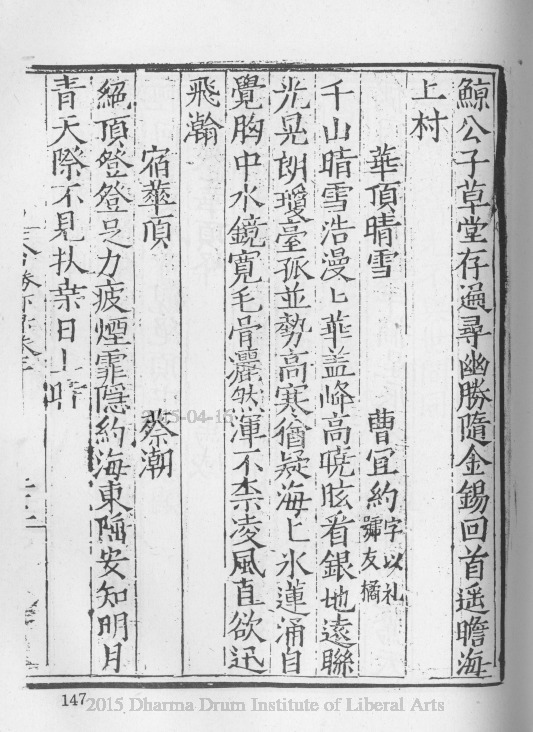 鯨公子草堂存過尋幽勝隨金錫回首遥瞻海
上村
華頂晴雪 曹宜約 字以礼 號友橘
千山晴雪浩漫匕華盖峰高曉眩看銀地遠聯
光晃朗瓊臺孤並勢高寒猶疑海匕氷蓮涌自
覺胸中水鏡寛毛骨灑然渾不柰凌風直欲迅
飛瀚
宿華頂 蔡潮
絕頂登登足力疲煙霏隱約海東隅安知明月
青天際不見扶桒日上時
147
2015-04-15
2015 Dharma Drum Institute of Liberal Arts